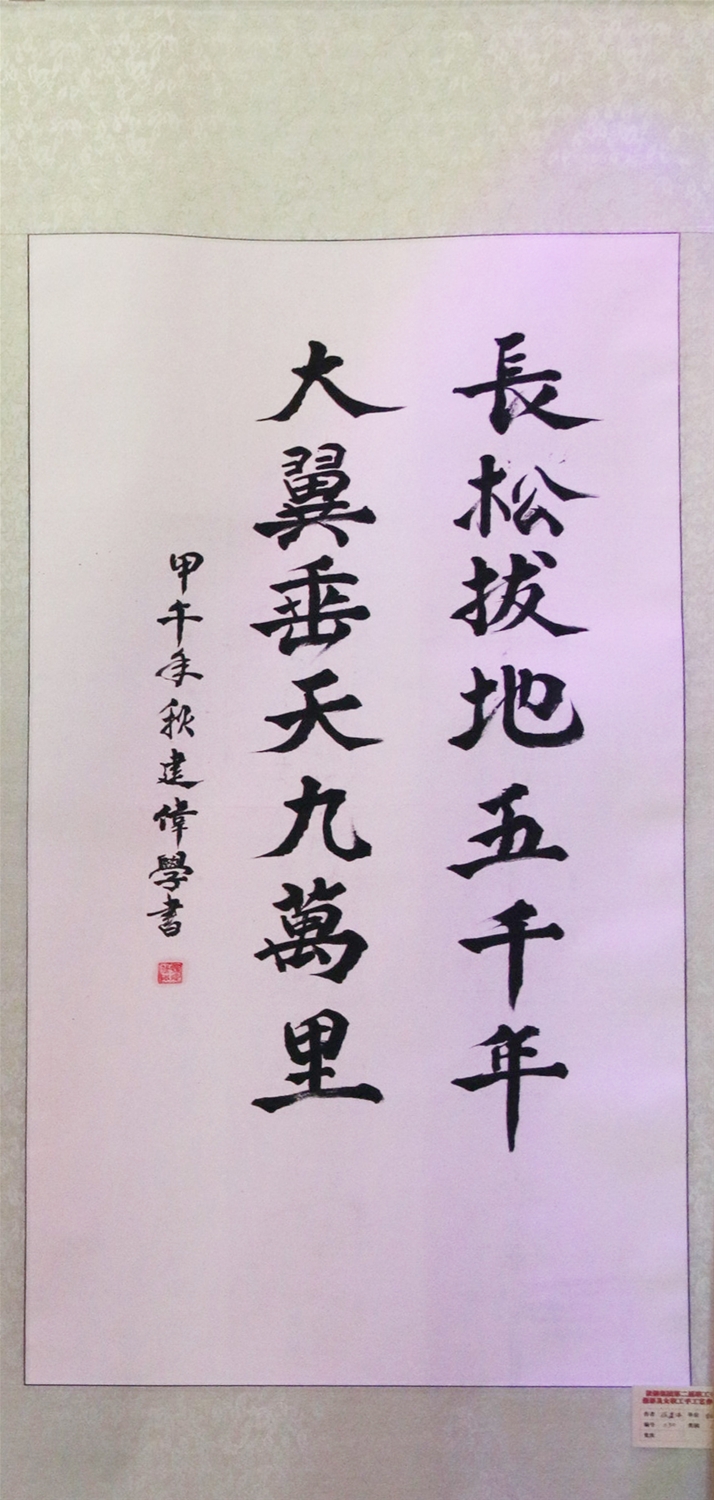 長松拔地五千年
大翼垂天九萬里
甲午年秋建偉學書
作者
編号